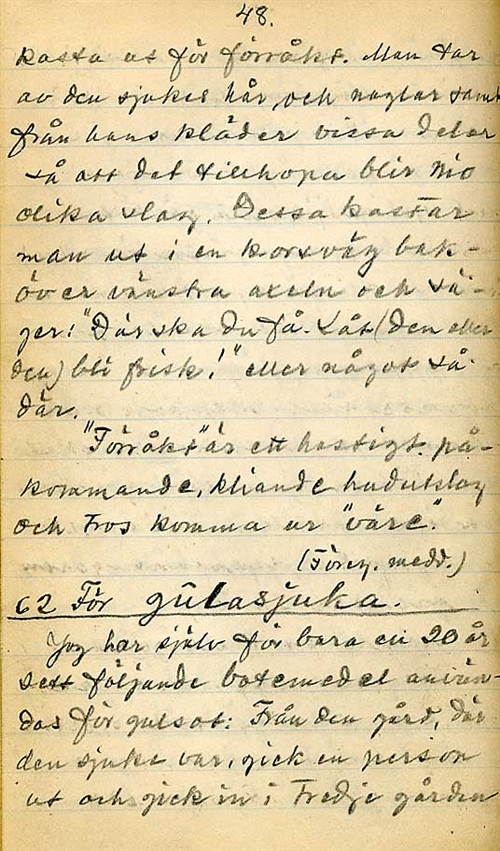 48.
kasta ut för förråkt. Man tar
av den sjukes hår, och naglar samt
från hans kläder vissa delar
så att det tillhopa blir nio
olika slag. Dessa kastar
man ut i en korsväg bak-
över vänstra axeln och sä-
ger: "Där ska du få. Låt (den eller
den) bli frisk!" eller något så
där.
"Förråkt" är ett hastigt på-
kommande, kliande hudutslag
och tros komma ur "väre".
(Föreg. medd.)
62 För gulasjuka.
Jag har själv för bara en 20 år
sett följande botemedel använ-
das för gulsot: Från den gård, där
den sjuke var, gick en person
ut och gick in i tredje gården